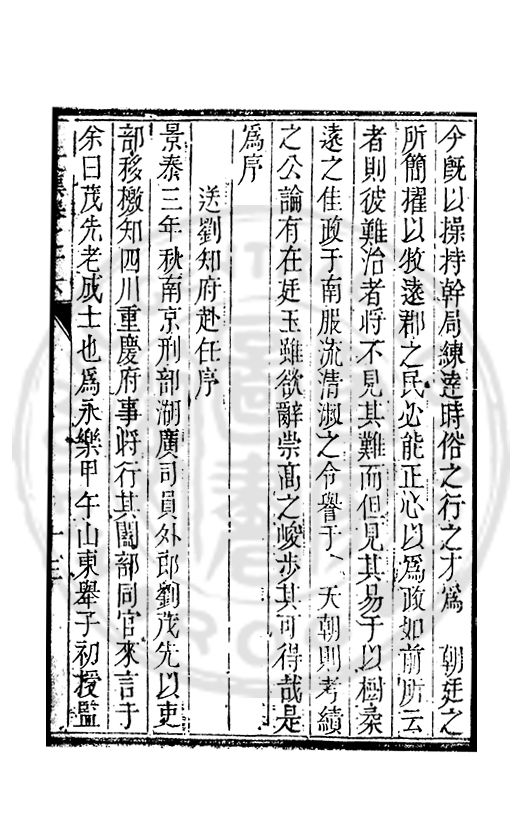 今既以操持幹局練達時俗之行之才爲 朝廷之
所簡擢以牧遠郡之民必能正心以爲政如前所云
者則彼難治者將不見其難而但見其易于以樹桑
遠之佳政于南服流清淑之令譽于 天朝則考績
之公論有在廷玉雖欲辭崇高之峻步其可得哉是
爲序
送劉知府赴任序
景泰三年秋南京刑部湖廣司員外郎劉茂先以吏
部移檄知四川重慶府事將行其闔部同官來言于
余曰茂先老成士也爲永樂甲午山東舉子初授監